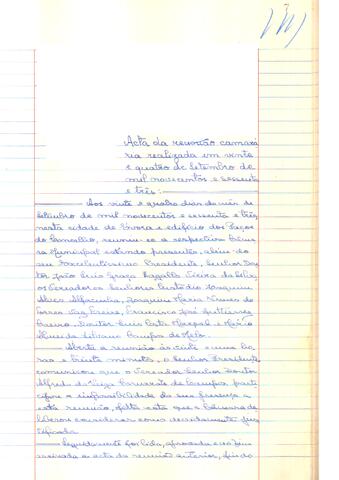 Acta da reunião camará
ria realizada em vinte
e quatro de Setembro de
mil novecentos e sessenta
e três:
Aos vinte e quatro dias do mês de
Setembro de mil novecentos e sessenta e três,
nesta cidade de Évora e edifício dos Paços
do Concelho, reuniu-se a respectiva Câma
ra Municipal estando presentes, além do
seu Excelentíssimo Presidente, Senhor Dou
tor João Luís Vieira da Silva,
os Vereadores Senhores Custódio Joaquim
Joaquim Maria Nunes de
Torres Vaz Freire, Francisco José
Doutor Luís e Mário
Campos de Melo.
Aberta a reunião às vinte e uma ho
ras e trinta minutos, o Senhor Presidente
comunicou que o Vereador Senhor Doutor
Alfredo parti
cipara a impossibilidade da sua presença a
esta reunião, falta esta que a Câmara de
liberou considerar como devidamente jus
tificada.
Seguidamente foi lida, aprovada e
assinada a acta da reunião anterior,